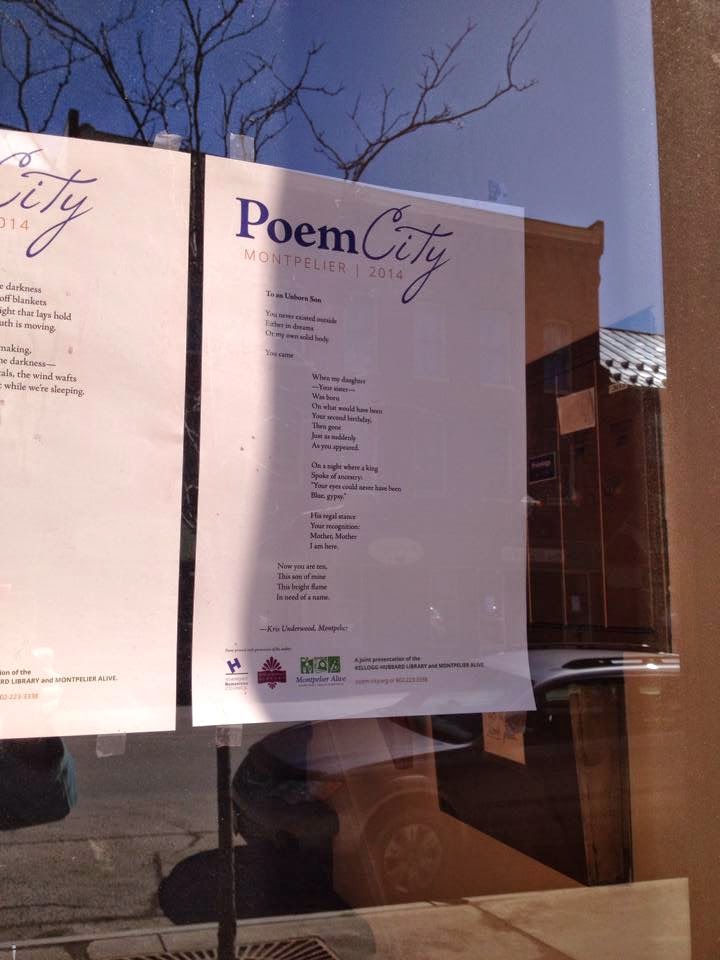 City
014
e darkness
off blankets
ight that lays hold
uth is moving.
making,
he darkness—
als, the wind wafts
while we're sleeping.
ion of the
RD LIBRARY and MONTPELIER ALIVE.
02-223-3338
PoemCity
MONTPELIER | 2014
To an Unborn Son
You never existed outside
Either in dreams
Or my own solid body.
You came
When my daughter
—Your sister—
Was born
On what would have been
Your second birthday,
Then gone
Just as suddenly
As you appeared.
On a night where a king
Spoke of ancestry:
"Your eyes could never have been
Blue, gypsy."
His regal stance
Your recognition:
Mother, Mother
I am here.
Now you are ten,
This son of mine
This bright flame
In need of a name.
—Kris Underwood, Montpelier
Poem printed with permission of the author.
H
VERMONT
Humanities
COUNCIL
Montpelier Alive
A joint presentation of the
KELLOGG-HUBBARD LIBRARY and MONTPELIER ALIVE.
poemcity.org or 802-223-3338